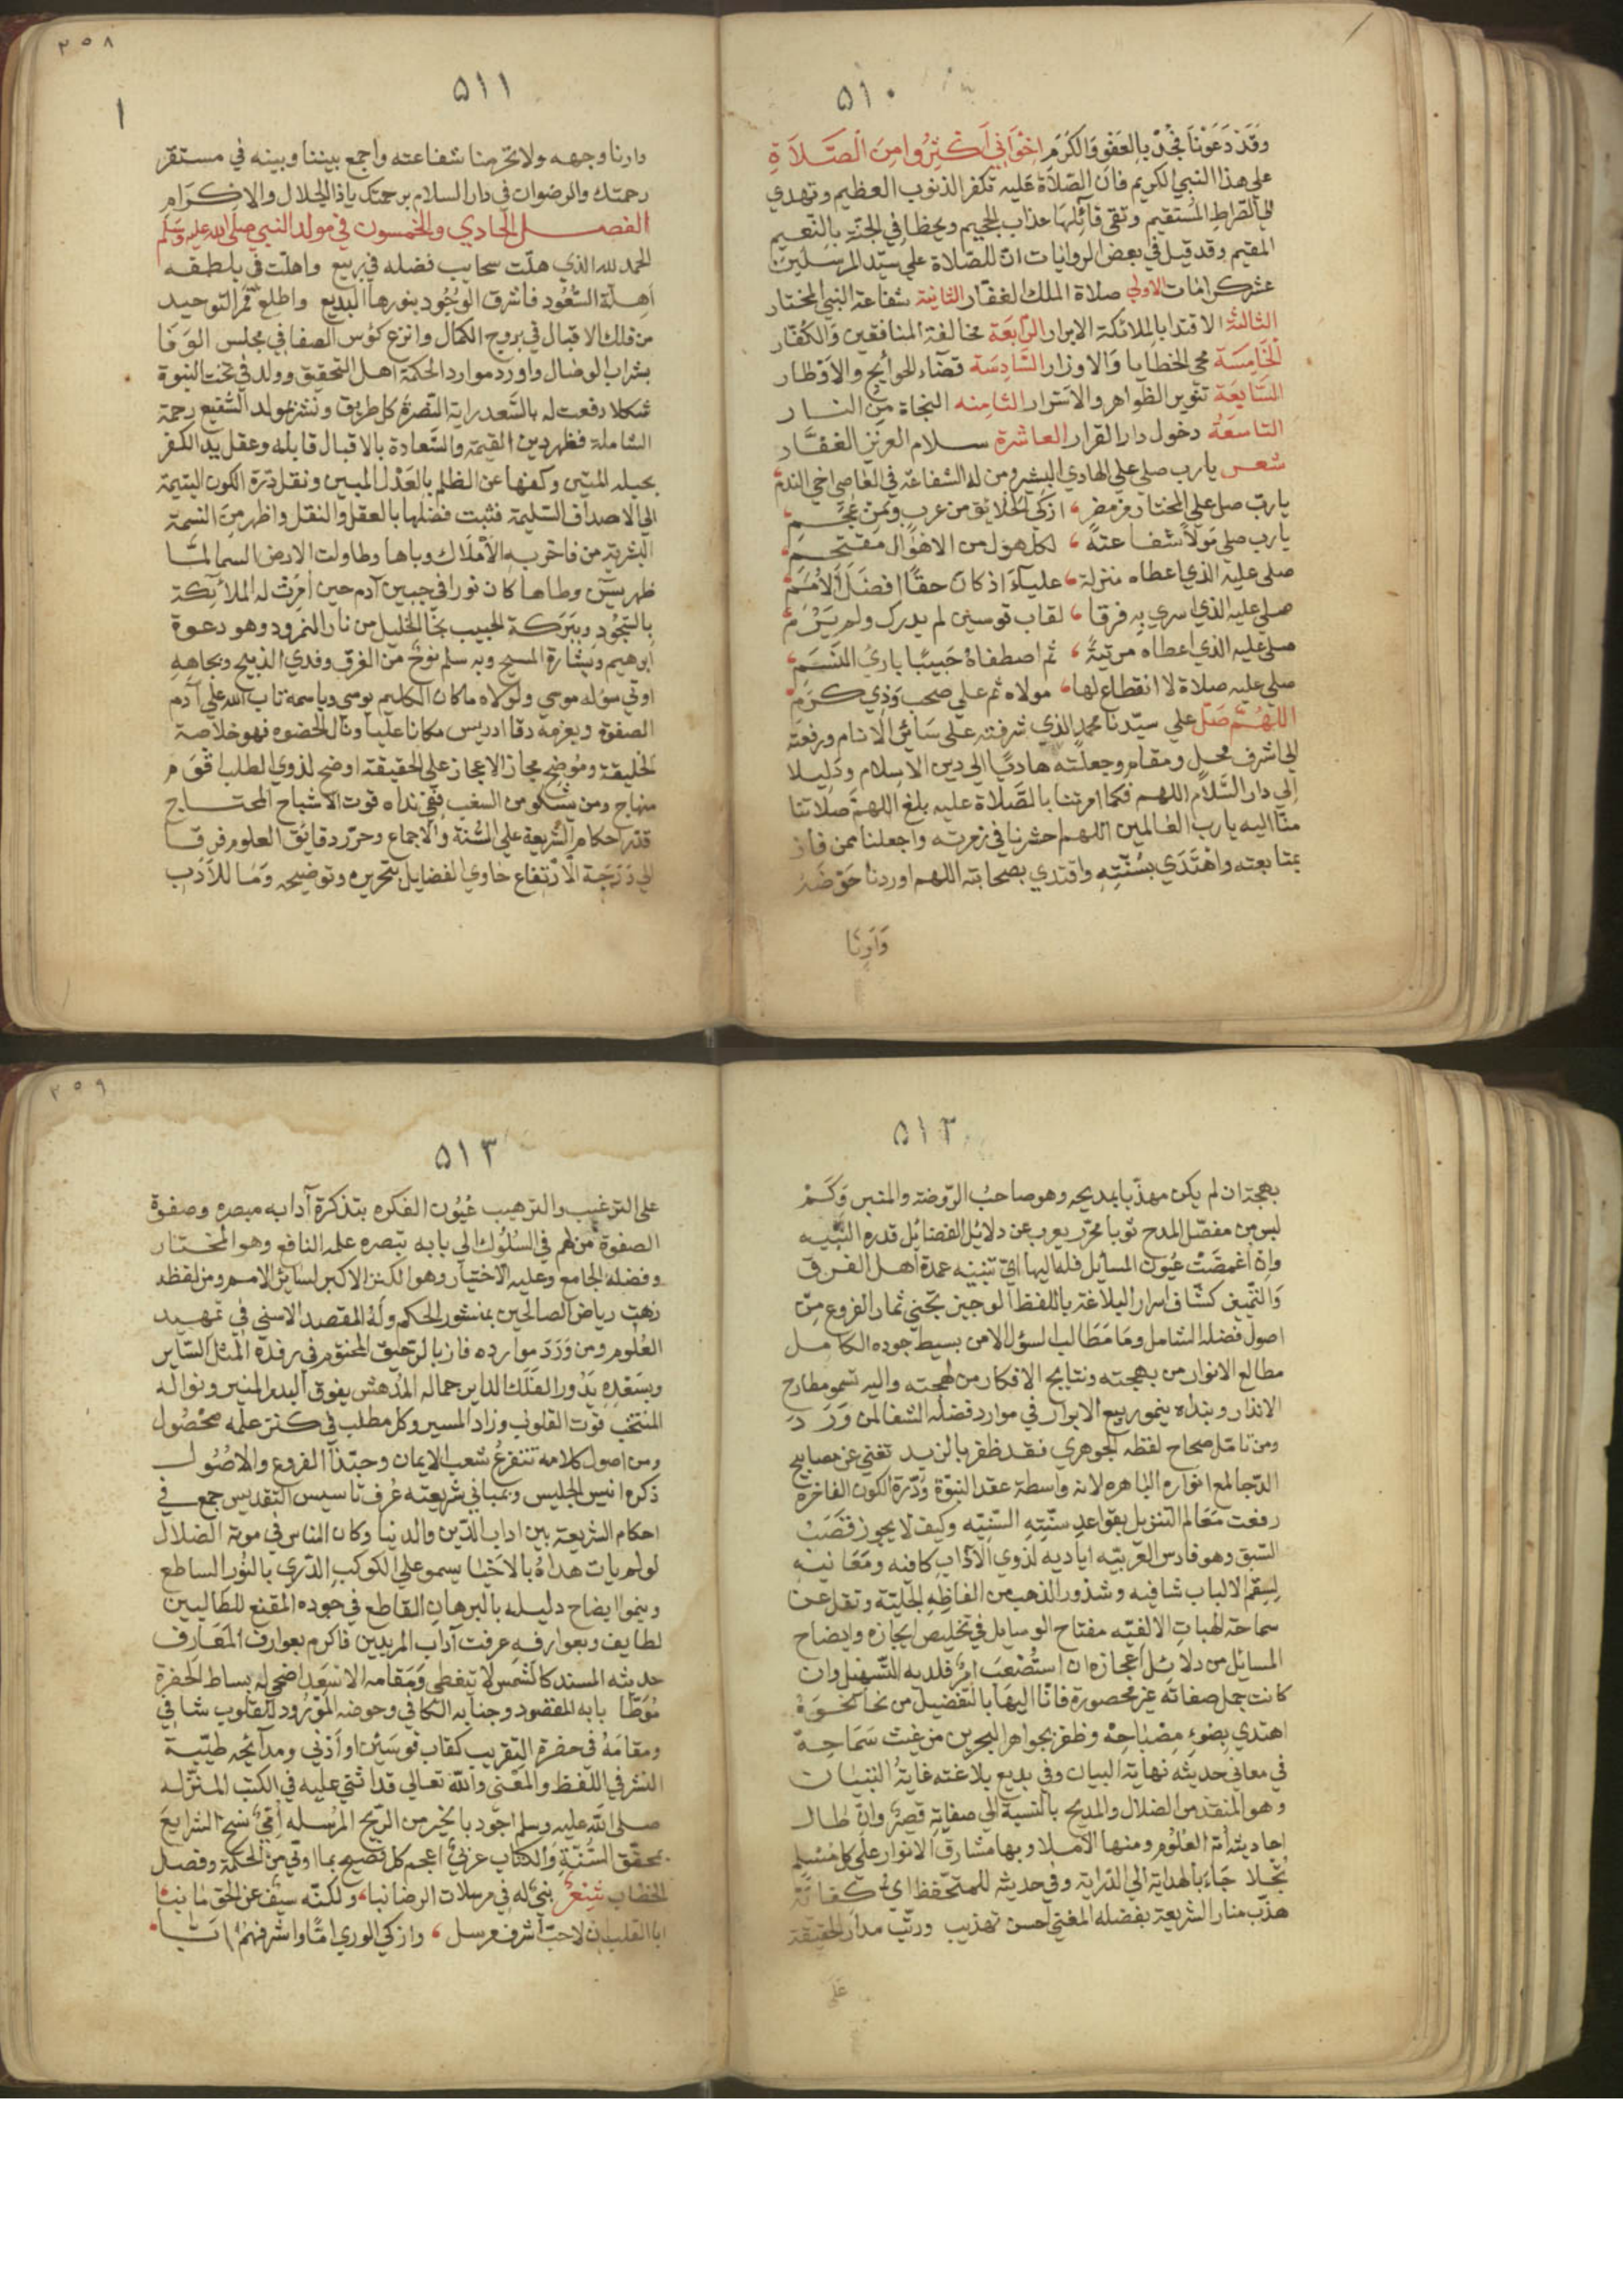 ٥١٠
وقد دعوناك فجد بالعفو والكرم اخواني اكثروا من الصلاة
على هذا النبي الكريم فان الصلاة عليه تكفر الذنوب العظيم وتهدي
الى الصراط المستقيم وتقي قائلها عذاب الجحيم ويحظا في الجنة بالنعيم
المقيم وقد قيل في بعض الروايات ان للصلاة على سيد المرسلين
عشر كرامات الاولى صلاة الملك الغفار الثانية شفاعة النبي المختار
الثالثة الاقتدا بالملائكة الابرار الرابعة مخالفة المنافقين والكفار
الخامسة محي الخطايا والاوزار السادسة قضاء الحوايج والاوطار
السابعة تنوير الظواهر والاسرار الثامنه النجاة من النار
التاسعة دخول دار القرار العاشرة سلام العزيز الغفار
شعر يارب صلي على الهادي البشير ومن له الشفاعة في العاصي اخي الندم
يارب صل على المختار من مضر ازكى الخلائق من عرب ومن عجم
يارب صلي مولا شفاعته لكل هول من الاهوال مقتحم
صلى عليه الذي اعطاه منزلة علياء اذ كان حقا افضل الامم
صلى عليه الذي اسرى به فرقا لقاب قوسين لم يدرك ولم يرم
صلى عليه الذي اعطاه مرتبة ثم اصطفاه حبيبا بارئ النسم
صلى عليه صلاة لا انقطاع لها مولاه ثم على صحب وذي كرم
اللهم صل على سيدنا محمد الذي شرفته على سائر الانام ورفعته
الى اشرف محل ومقام وجعلته هاديا الى دين الاسلام ودليلا
الى دار السلام اللهم فكما امرتنا بالصلاة عليه بلغ اللهم صلاتنا
منا اليه يارب العالمين اللهم احشرنا في زمرته واجعلنا ممن فاز
بمتابعته واهتدى بسنته واقتدى بصحابته اللهم اوردنا حوضه
وارنا
٢٥٨
٥١١
وارنا وجهه ولا تحرمنا شفاعته واجمع بيننا وبينه في مستقر
رحمتك والرضوان في دار السلام برحمتك ياذا الجلال والاكرام
الفصل الحادي والخمسون في مولد النبي صلى الله عليه وسلم
الحمد لله الذي هلت سحايب فضله في ربيع واهلت في بلطفه
اهلة السعود فاشرق الوجود بنورها البديع واطلع قمر التوحيد
من فلك الاقبال في بروج الكمال وانزع كؤس الصفا في مجلس الوفا
بشراب الوصال واورد موارد الحكمة اهل التحقيق وولد في تخت النبوة
شكلا رفعت له بالسعد راية النصرة كل طريق ونشر بمولد الشفيع رحمة
الشاملة فظهر دين القيمة والسعادة بالاقبال قابله وعقل يد الكفر
بحبله المتين وكفها عن الظلم بالعدل المبين ونقل درة الكون اليتيمة
الى الاصداف السليمة فثبت فضلها بالعقل والنقل واظهر من النسمة
البشرية من فاخر به الاملاك وباها وطاولت الارض السما لما
ظهر يس وطاها كان نورا في جبين آدم حين امرت له الملائكة
بالسجود وببركة الحبيب نجا الخليل من نار النمرود وهو دعوة
ابرهيم وبشارة المسيح وبه سلم نوح من الغرق وفدي الذبيح وبجاهه
اوتي سؤله موسى ولولاه ما كان الكليم يوسى وباسمه تاب الله على آدم
الصفوة وبعزمه رقا ادريس مكانا عليا ونال الحضوه فهو خلاصة
الخليقة وموضح مجاز الاعجاز على الحقيقة اوضح لذوي الطلب اقوم
منهاج ومن يشكو من السغب ففي نداه قوت الاشباح المحتاج
قدر احكام الشريعة على السنة والاجماع وحرر دقائق العلوم فرقا
الى درجة الارتفاع حاوي الفضايل بتحريره وتوضيحه وما للادب
٥١٢
بهجة ان لم يكن مهذبا بمديحه وهو صاحب الروضة والمنبر وكم
لبس من مفصل المدح ثوبا محرر يعرب عن دلائل الفضائل قدره النبيه
وان اغمضت عيون المسايل فله اليها اي تنبيه عمدة اهل الفرق
والتمييز كشاف اسرار البلاغة باللفظ الوجيز تجني ثمار الفروع من
اصول فضله الشامل وما مطالب السؤل الا من بسيط جوده الكامل
مطالع الانوار من بهجته ونتايج الافكار من لهجته واليه تسمو مطارح
الانذار وبنداه ينمو ربيع الابرار في موارد فضله الشفا لمن ورد
ومن تامل صحاح لفظه الجوهري فقد ظفر بالزبد تغني عن مصابيح
الدجا لمع انواره الباهره لانه واسطة عقد النبوة ودرة الكون الفاخره
رفعت معالم التنزيل بقواعد سنته السنيه وكيف لا يحوز قصب
السبق وهو فارس العربيه اياديه لذوي الآداب كافيه ومعانيه
لسقم الالباب شافيه وشذور الذهب من الفاظه الجلية وتقل عن
سماحة الهبات الالفيه مفتاح الوسايل في تخليص ايجازه وايضاح
المسائل من دلائل اعجازه ان استصعب امر فلديه التسهيل وان
كانت جمل صفاته غير محصورة فانا اليها بالتفضيل من نحا نحوه
اهتدى بضوء مصباحه وظفر بجواهر البحرين من غيث سماحة
في معاني حديثه نهاية البيان وفي بديع بلاغته غاية التبيان
وهو المنقذ من الضلال والمديح بالنسبة الى صفاته قصر وان طال
احاديثه امة العلوم ومنها الاملا وبها مشارق الانوار على كل مسلم
تجلا جاء بالهداية الى الدراية وفي حديثه للمتحفظ اي كفاية
هذب منار الشريعة بفضله المغني احسن تهذيب ورتب مدار الحقيقة
على
٢٥٩
٥١٣
على الترغيب والترهيب عيون الفكره بتذكرة آدابه مبصره وصفوة
الصفوة من لهم في السلوك الى بابه تبصره علمه النافع وهو المختار
وفضله الجامع وعليه الاختيار وهو الكنز الاكبر لسائر الامم ومن لفظه
زهت رياض الصالحين بمنشور الحكم وله المقصد الاسنى في تمهيد
العلوم ومن ورد موارده فاز بالرحيق المختوم في رفده المثل الساير
وبسعده يدور الفلك الداير جماله المدهش يفوق البدر المنير ونواله
المنتخب قوت القلوب وزاد المسير وكل مطلب في كنز علمه محصول
ومن اصول كلامه تتفرع شعب الايمان وحبذا الفروع والاصول
ذكره انيس الجليس وبمباني شريعته عرف تاسيس التقديس جمع في
احكام الشريعة بين اداب الدين والدنيا وكان الناس في موتة الضلال
لو لم يات هداه بالاحيا يسمو على الكوكب الدري بالنور الساطع
وينمو ايضاح دليله بالبرهان القاطع في جوده المقنع للطالبين
لطايف وبعوارفه عرفت آداب المريدين فاكرم بعوارف المعارف
حديثه المسند كالشمس لا تغطى ومقامه الاسعد اضحى له بساط الحضرة
موطا بابه المقصود وجنابه الكافي وحوضه المورود للقلوب شافي
ومقامه في حضرة التقريب كقاب قوسين او ادنى ومدائحه طيبة
النشر في اللفظ والمعنى والله تعالى قد اثنى عليه في الكتب المنزله
صلى الله عليه وسلم اجود بالخير من الريح المرسله امي نسخ الشرايع
بمحقق السنة والكتاب عربي اعجم كل فصيح بما اوتي من الحكمة وفصل
الخطاب شعر نبي له في مرسلات الرضا نبا ولكنه سيف عن الحق ما نبا
ابا القلب ان لا حب اشرف مرسل وازكى الورى اما واشرفهم ابا